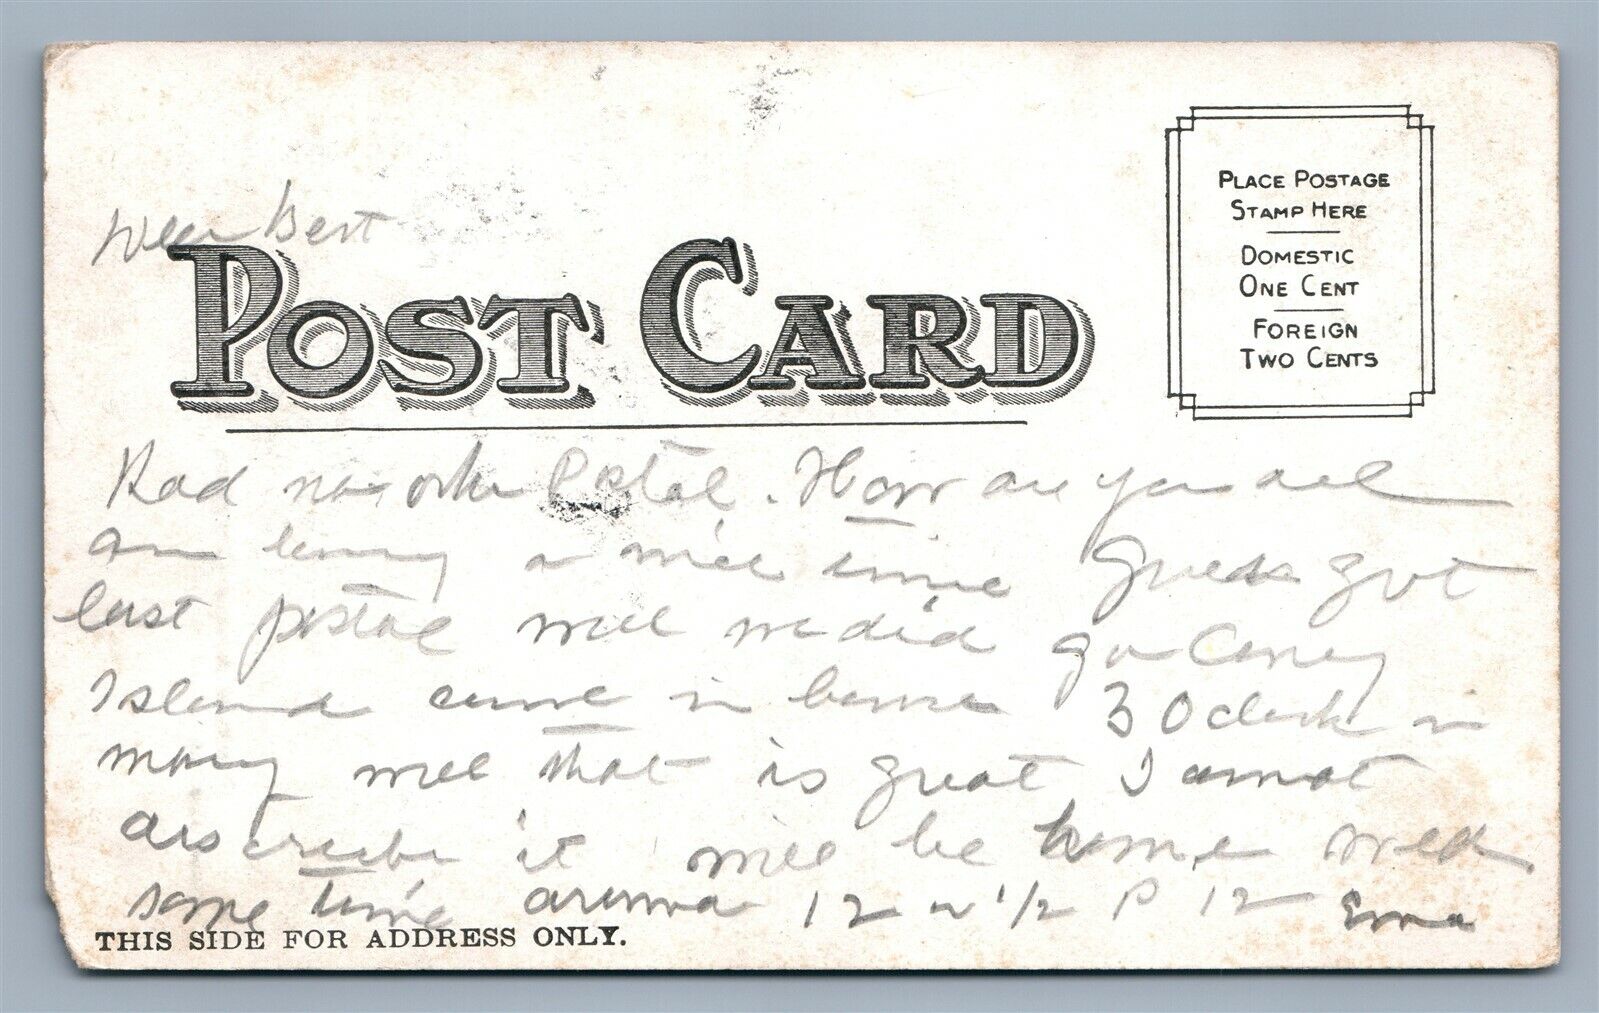 Dear Bert
POST CARD
PLACE POSTAGE
STAMP HERE
DOMESTIC
ONE CENT
FOREIGN
TWO CENTS
Had no other Postal. How are you all
am having a nice time Guess got
last postal well we did go Coney
Island came in home 3 Oclock in
morng well that is great I cannot
describe it will be home Wed
some time around 12 or 1/2 P 12 Erma
THIS SIDE FOR ADDRESS ONLY.